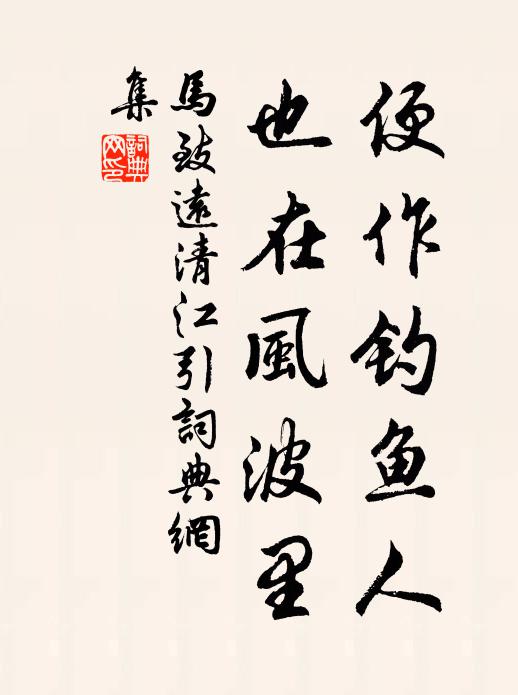 便作钓鱼人
也在風波里
馬致遠清江引詞典網
集
詞典网印